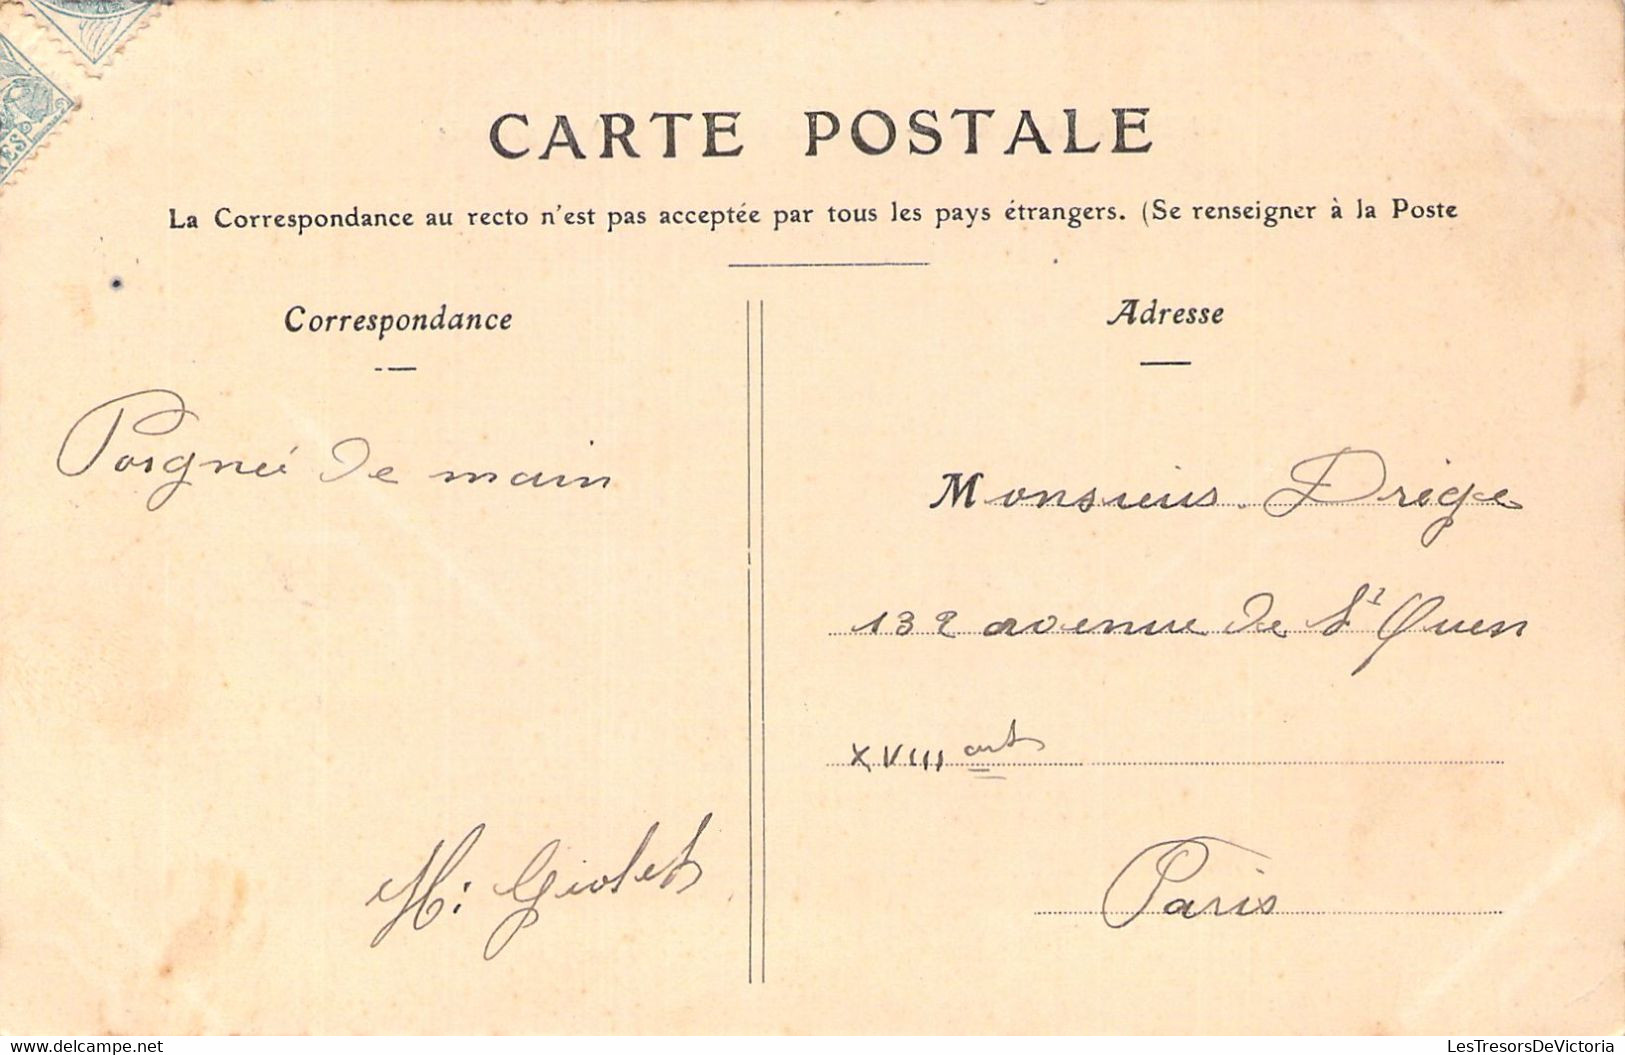 CARTE POSTALE
La Correspondance au recto n'est pas acceptée par tous les pays étrangers. (Se renseigner à la Poste
Correspondance
Poignée de main
H. Giolet
Adresse
Monsieur Drige
132 avenue de St Ouen
XVIII art
Paris
Delcampe.net
LesTresorsDeVictoria